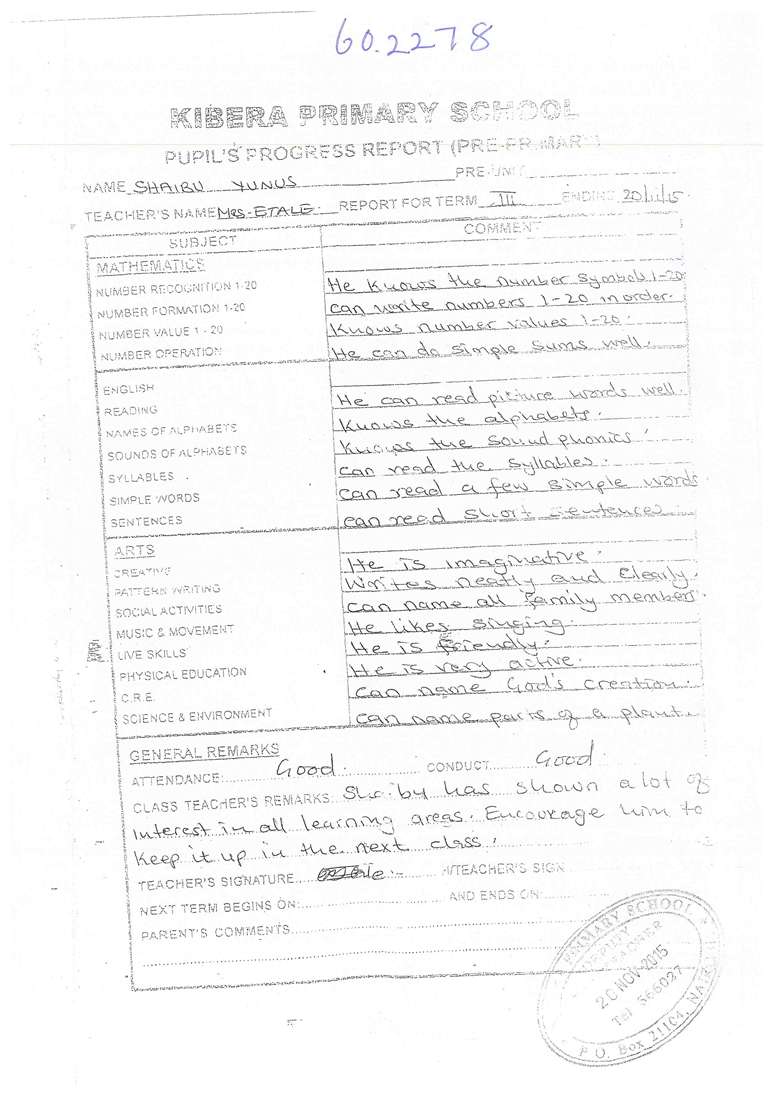 60.2278
KIBERA PRIMARY SCHOOL
PUPIL'S PROGRESS REPORT (PRE-PRIMARY)
NAME SHAIBU YUNUS PRE-UNIT
TEACHER'S NAME MRS-ETALE. REPORT FOR TERM III ENDING 20/11/15.
SUBJECT COMMENT
MATHEMATICS
NUMBER RECOGNITION 1-20 He knows the number symbols 1-20
NUMBER FORMATION 1-20 can write numbers 1-20 in order.
NUMBER VALUE 1 - 20 Knows number values 1-20.
NUMBER OPERATION He can do simple sums well.
ENGLISH
READING He can read picture words well.
NAMES OF ALPHABETS Knows the alphabets.
SOUNDS OF ALPHABETS Knows the sound phonics.
SYLLABLES can read the syllables.
SIMPLE WORDS can read a few simple words
SENTENCES can read short sentences
ARTS
CREATIVE He is imaginative.
PATTERN WRITING Writes neatly and clearly.
SOCIAL ACTIVITIES can name all family members.
MUSIC & MOVEMENT He likes singing.
LIVE SKILLS He is friendly.
PHYSICAL EDUCATION He is very active.
C.R.E. Can name God's creation.
SCIENCE & ENVIRONMENT Can name parts of a plant.
GENERAL REMARKS
ATTENDANCE: Good. CONDUCT Good.
CLASS TEACHER'S REMARKS Shaiby has shown a lot of
interest in all learning areas. Encourage him to
keep it up in the next class.
TEACHER'S SIGNATURE H/TEACHER'S SIGN
NEXT TERM BEGINS ON: AND ENDS ON:
PARENT'S COMMENTS
PRIMARY SCHOOL
DEPUTY
HEADTEACHER
20 NOV 2015
Tel 566027
P.O. Box 21104, NAIROBI